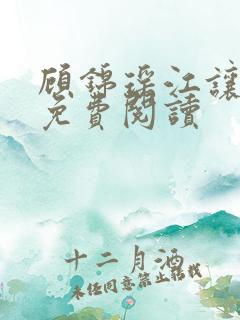 顾錦瑶江讓
免費閱讀
十二月酒
未經同意禁止轉載